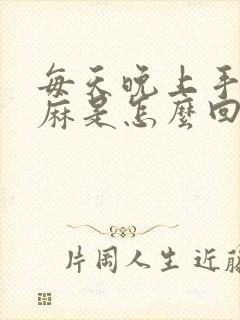 每天晚上手
麻是怎麼回
片岡人生 近藤